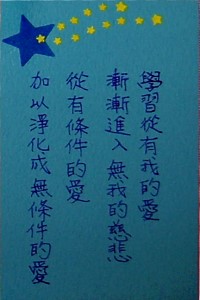 學習從有我的愛
漸漸進入無我的慈悲
從有條件的愛
加以淨化成無條件的愛